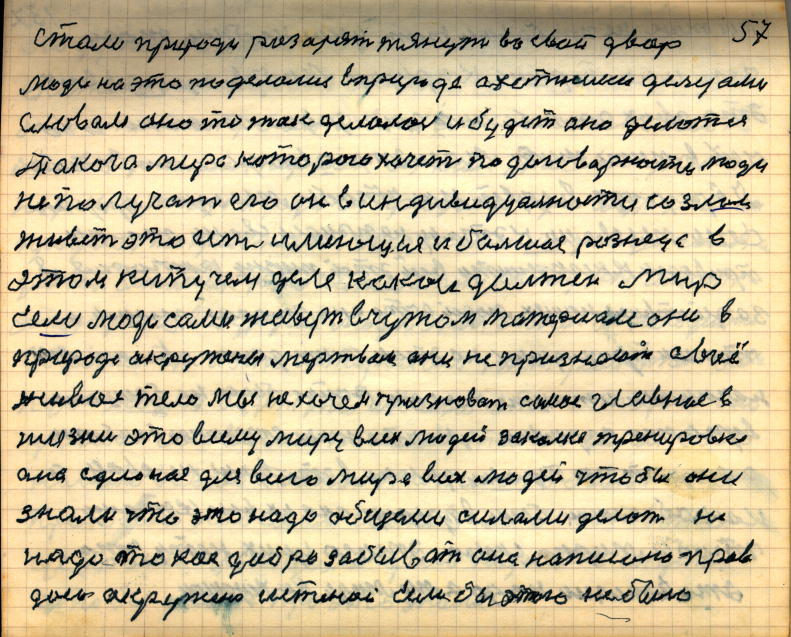 57
стали природи разарят тянут во свой двор
люди на это поделались в природе охотники делцами
словам оно то так делолос и будет оно делотся
Такога мира которого хочет по договарности люди
не получат его он в индивидуалности со злом
живет это ест имеющия и болшая разнеца в
этом кипучем деле каков должен мир
Если люди сами живут в чужом материале они в
природе акружены мертвым они не признают своё
живое тело мы не хочем признават самое главное в
жизни это всему миру всех людей закалка тренировка
она сделоная для всего мира всех людей чтобы они
знали что это надо общеми силами делат не
надо токое добро забыват она написоно прав
дою акружено истеной Если бы этого не было